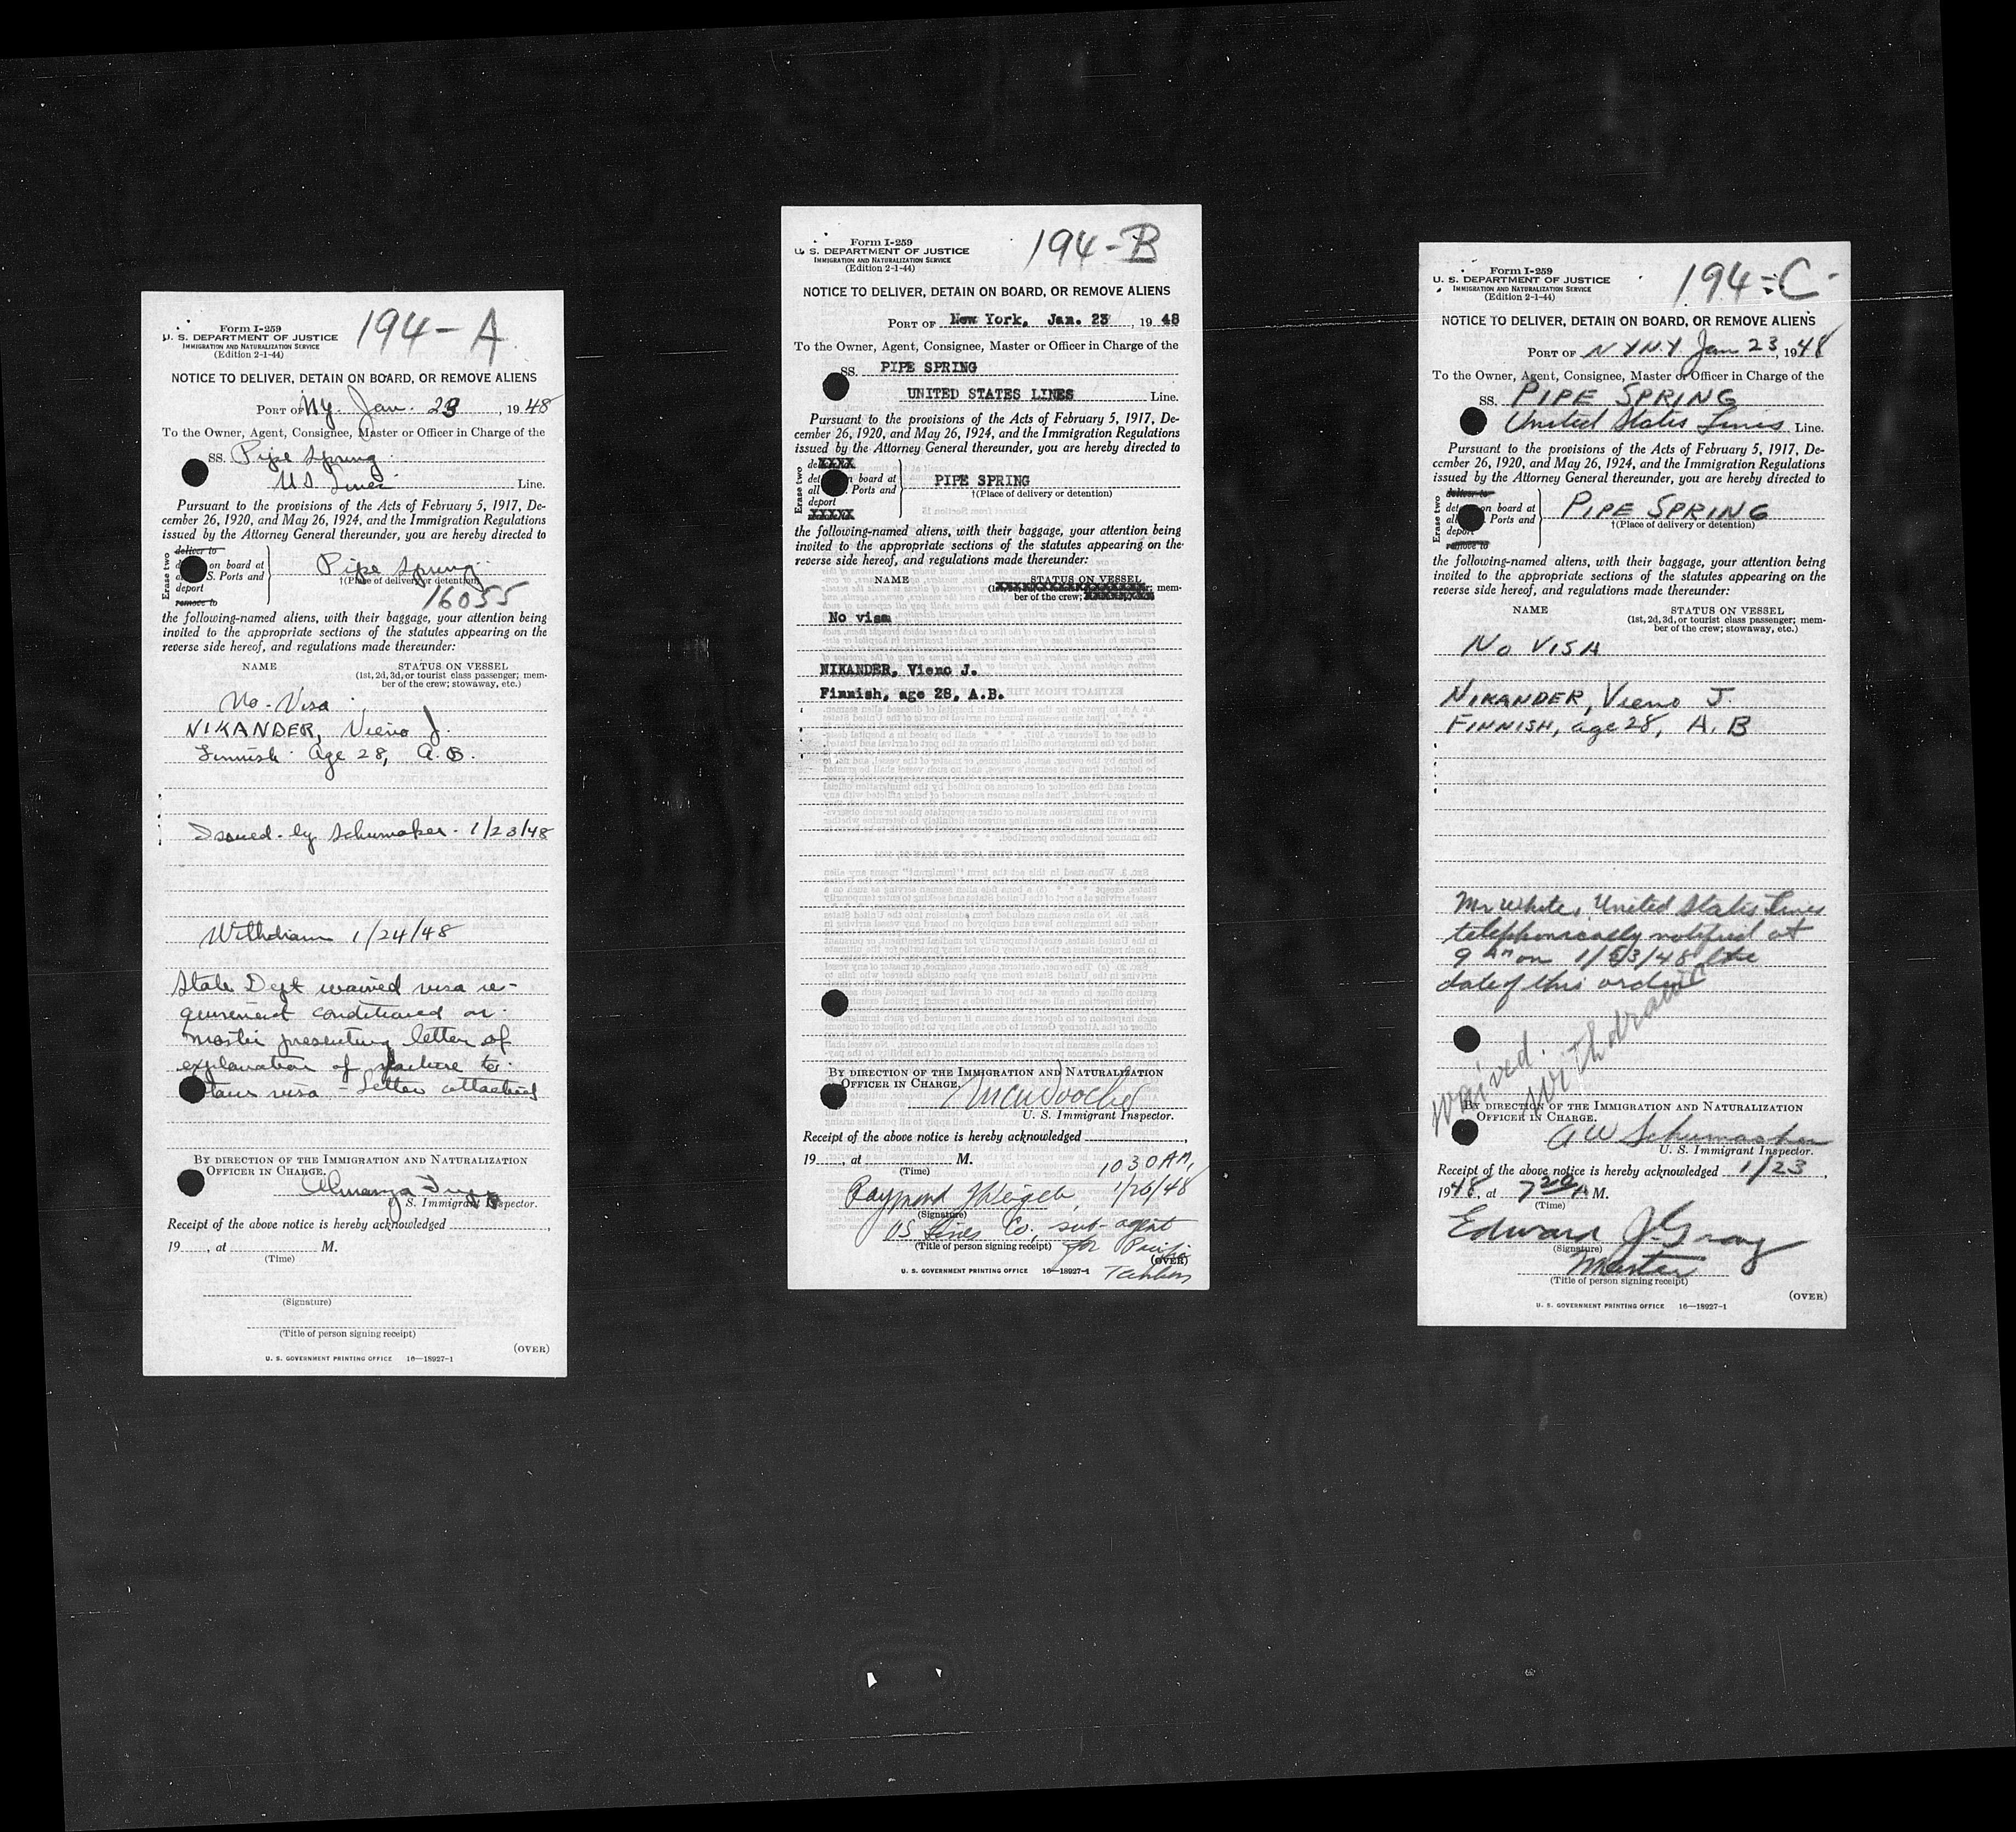 194-A
Form I-259
U. S. DEPARTMENT OF JUSTICE
IMMIGRATION AND NATURALIZATION SERVICE
(Edition 2-1-44)
NOTICE TO DELIVER, DETAIN ON BOARD, OR REMOVE ALIENS
PORT OF NY. Jan. 23, 1948
To the Owner, Agent, Consignee, Master or Officer in Charge of the
SS. Pipe Spring
US Lines Line.
Pursuant to the provisions of the Acts of February 5, 1917, De-
cember 26, 1920, and May 26, 1924, and the Immigration Regulations
issued by the Attorney General thereunder, you are hereby directed to
Erase two
deliver to
on board at
S. Ports and
deport
remove to
Pipe Spring
†(Place of delivery or detention)
16055
the following-named aliens, with their baggage, your attention being
invited to the appropriate sections of the statutes appearing on the
reverse side hereof, and regulations made thereunder:
NAME STATUS ON VESSEL
(1st, 2d, 3d, or tourist class passenger; mem-
ber of the crew; stowaway, etc.)
No-Visa
NIKANDER, Vieno J.
Finnish Age 28, A.B.
Issued by Schumaker - 1/23/48
Withdrawn 1/24/48
State Dept waived visa re-
quirement conditioned on
master presenting letter of
explanation of failure to
visa - Letter attached
BY DIRECTION OF THE IMMIGRATION AND NATURALIZATION
OFFICER IN CHARGE.
U. S. Immigrant Inspector.
Receipt of the above notice is hereby acknowledged
19 , at M.
(Time)
(Signature)
(Title of person signing receipt)
(OVER)
U. S. GOVERNMENT PRINTING OFFICE 16—18927-1
194-B
Form I-259
U. S. DEPARTMENT OF JUSTICE
IMMIGRATION AND NATURALIZATION SERVICE
(Edition 2-1-44)
NOTICE TO DELIVER, DETAIN ON BOARD, OR REMOVE ALIENS
PORT OF New York, Jan. 23, 1948
To the Owner, Agent, Consignee, Master or Officer in Charge of the
SS. PIPE SPRING
UNITED STATES LINES Line.
Pursuant to the provisions of the Acts of February 5, 1917, De-
cember 26, 1920, and May 26, 1924, and the Immigration Regulations
issued by the Attorney General thereunder, you are hereby directed to
Erase two
deXXXX
det n board at
all Ports and
deport
XXXXX
PIPE SPRING
†(Place of delivery or detention)
the following-named aliens, with their baggage, your attention being
invited to the appropriate sections of the statutes appearing on the
reverse side hereof, and regulations made thereunder:
NAME STATUS ON VESSEL
mem-
ber of the crew;
No visa
NIKANDER, Vieno J.
Finnish, age 28, A.B.
BY DIRECTION OF THE IMMIGRATION AND NATURALIZATION
OFFICER IN CHARGE.
U. S. Immigrant Inspector.
Receipt of the above notice is hereby acknowledged
19 , at M.
(Time)
1030 AM,
Raymond 1/26/48
(Signature)
US Lines Co, sub-agent
(Title of person signing receipt) for Pacific
(OVER)
U. S. GOVERNMENT PRINTING OFFICE 16—18927-1 Tankers
194-C
Form I-259
U. S. DEPARTMENT OF JUSTICE
IMMIGRATION AND NATURALIZATION SERVICE
(Edition 2-1-44)
NOTICE TO DELIVER, DETAIN ON BOARD, OR REMOVE ALIENS
PORT OF NYNY Jan 23, 1948
To the Owner, Agent, Consignee, Master or Officer in Charge of the
SS. PIPE SPRING
United States Lines Line.
Pursuant to the provisions of the Acts of February 5, 1917, De-
cember 26, 1920, and May 26, 1924, and the Immigration Regulations
issued by the Attorney General thereunder, you are hereby directed to
Erase two
deliver to
det on board at
all Ports and
deport
remove to
PIPE SPRING
†(Place of delivery or detention)
the following-named aliens, with their baggage, your attention being
invited to the appropriate sections of the statutes appearing on the
reverse side hereof, and regulations made thereunder:
NAME STATUS ON VESSEL
(1st, 2d, 3d, or tourist class passenger; mem-
ber of the crew; stowaway, etc.)
No VISA
NIKANDER, Vieno J.
FINNISH, age 28, A.B
Mr White, United States Lines
telephonically notified at
9 AM on 1/23/48 the
date of this order
Waived.
Withdrawn
BY DIRECTION OF THE IMMIGRATION AND NATURALIZATION
OFFICER IN CHARGE.
A W Schumacher
U. S. Immigrant Inspector.
Receipt of the above notice is hereby acknowledged 1/23,
1948, at 7 20 A M.
(Time)
Edward J. Gray
(Signature)
Master
(Title of person signing receipt)
(OVER)
U. S. GOVERNMENT PRINTING OFFICE 16—18927-1